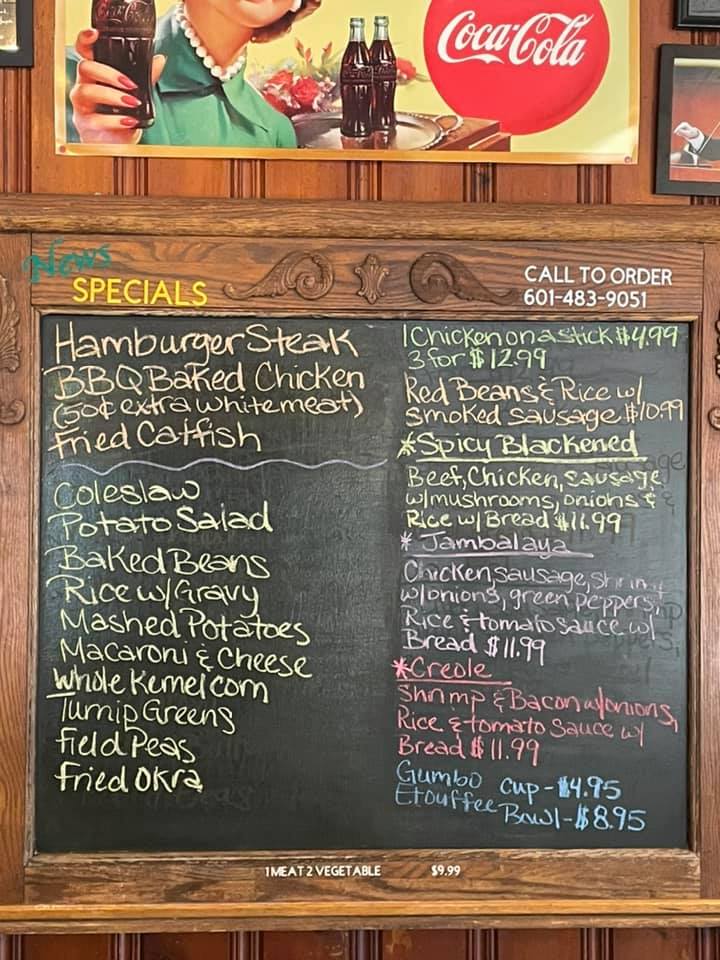 Coca-Cola
News
SPECIALS
CALL TO ORDER
601-483-9051
Hamburger Steak
BBQ Baked Chicken
(50¢ extra white meat)
Fried Catfish
Coleslaw
Potato Salad
Baked Beans
Rice w/Gravy
Mashed Potatoes
Macaroni & Cheese
Whole Kernel corn
Turnip Greens
Field Peas
Fried Okra
1 Chicken on a stick $4.99
3 for $12.99
Red Beans & Rice w/
Smoked sausage $10.99
*Spicy Blackened
Beef, Chicken, sausage
w/mushrooms, onions &
Rice w/ Bread $11.99
* Jambalaya
Chicken, sausage, shrimp
w/onions, green peppers,
Rice & tomato sauce w/
Bread $11.99
*Creole
Shrimp & Bacon w/onions,
Rice & tomato sauce w/
Bread $11.99
Gumbo cup - $4.95
Etouffee Bowl - $8.95
1 MEAT 2 VEGETABLE $9.99